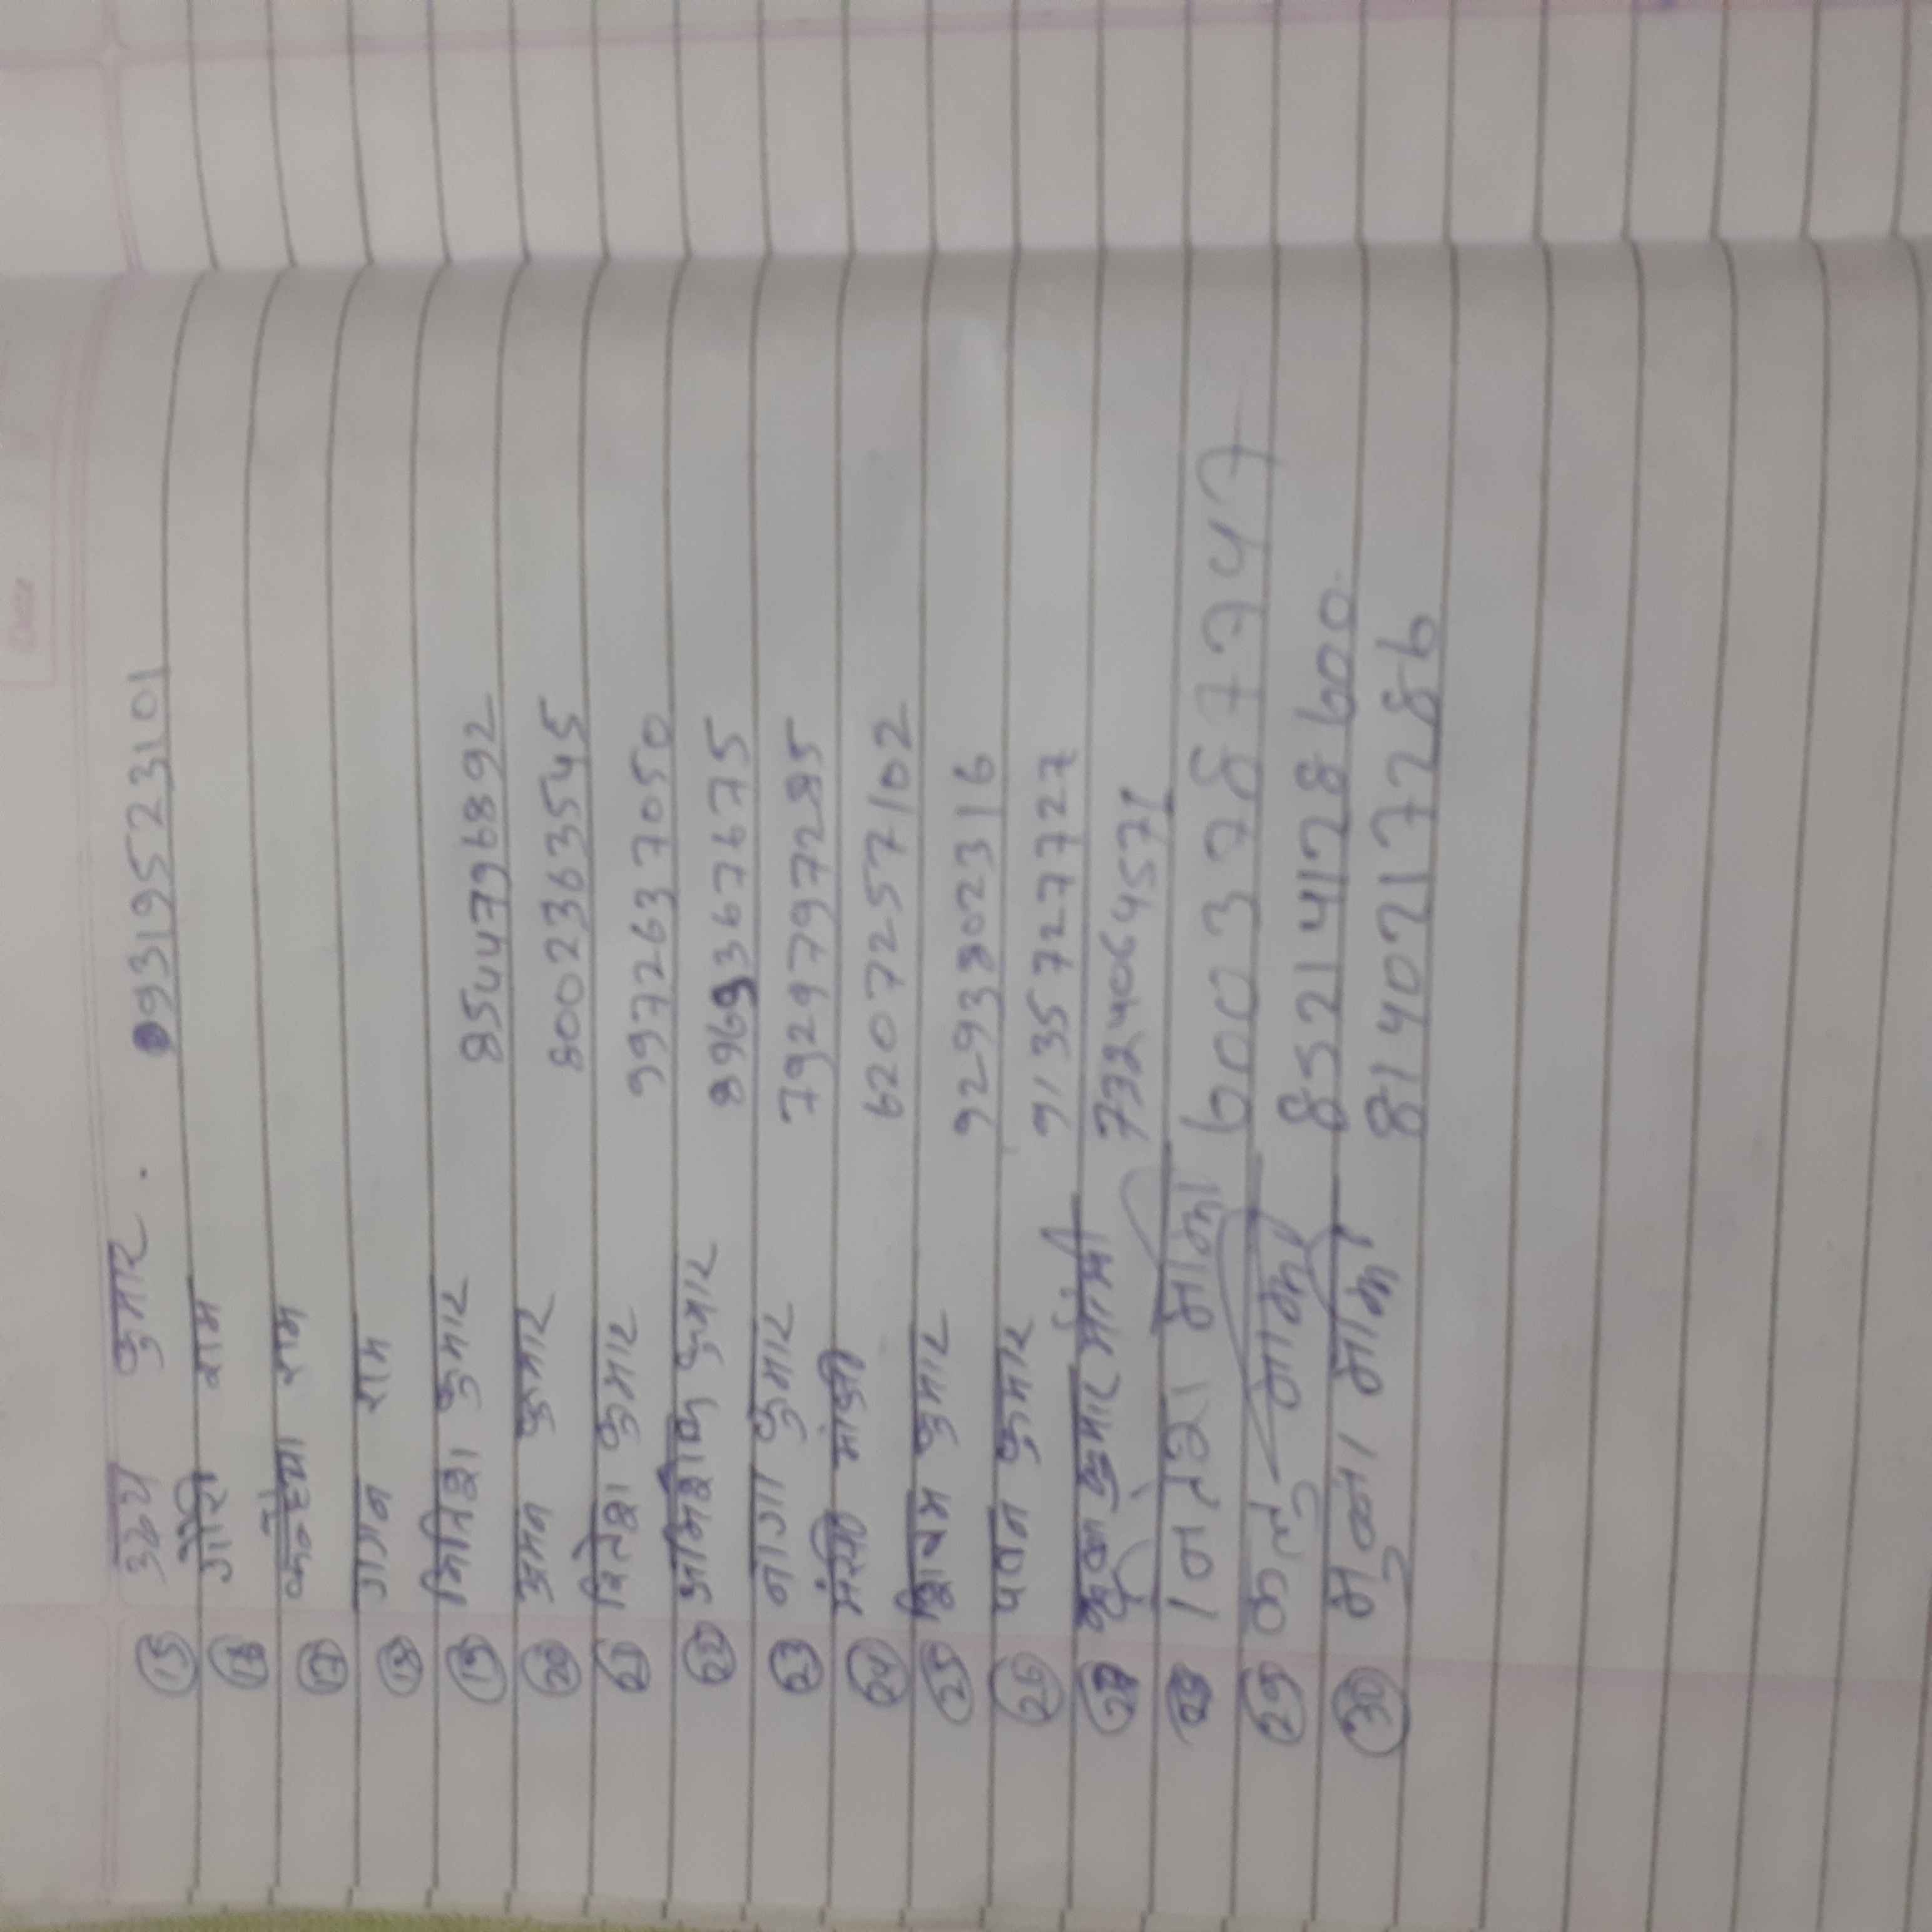 Date
15 उदय कुमार . 9319523101
16 गौरी राम
17 कन्हैया राम
18 गगन राम
19 मितिश कुमार 8544796892
20 अमन कुमार 8002363545
21 वितेश कुमार 9972637050
22 अभिशेक कुमार 8969367675
23 नागा कुमार 7929797285
24 मंसी मांझी 6207257102
25 शिवम कुमार 9293802316
26 पवन कुमार 9135727727
27 कुमार मांझी 7324064571
28 मांझी 6003787747
29 कलु मांझी 8521428600
30 मुन्ना मांझी 8140217286